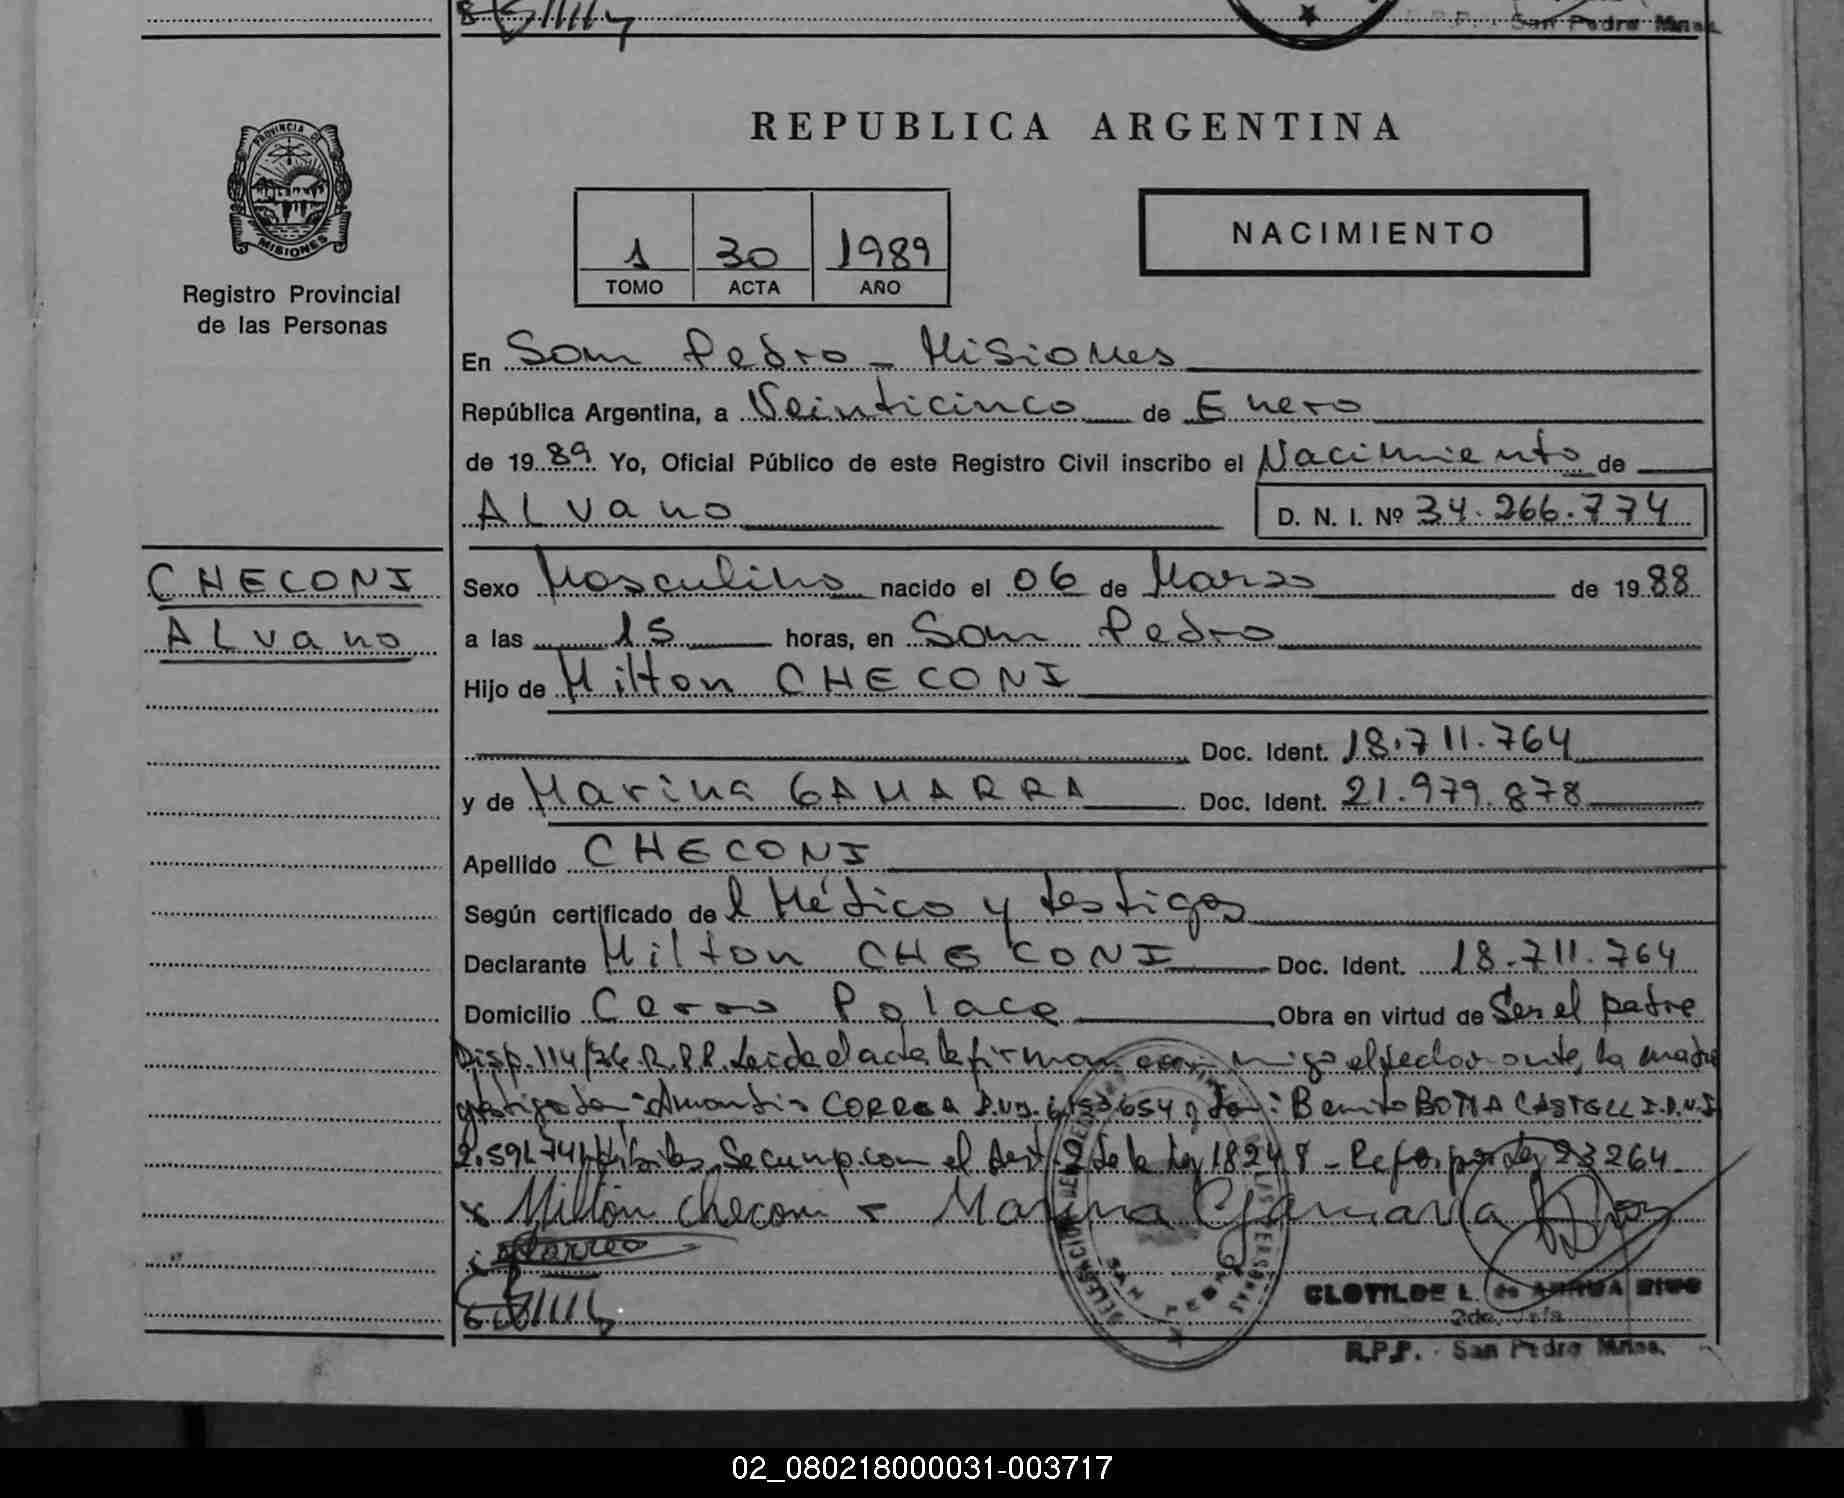 San Pedro Mnes.
REPUBLICA ARGENTINA
PROVINCIA DE
MISIONES
Registro Provincial
de las Personas
1 30 1989
TOMO ACTA AÑO
NACIMIENTO
En San Pedro - Misiones
República Argentina, a Veinticinco de Enero
de 1989 Yo, Oficial Público de este Registro Civil inscribo el Nacimiento de
ALvano
D. N. I. Nº 34.266.774
CHECONI
ALvano
Sexo Masculino nacido el 06 de Marzo de 1988
a las 15 horas, en San Pedro
Hijo de Milton CHECONI
Doc. Ident. 18.711.764
y de Marina GAMARRA Doc. Ident. 21.979.878
Apellido CHECONI
Según certificado del Médico y testigos
Declarante Milton CHECONI Doc. Ident. 18.711.764
Domicilio Cerro Polaco Obra en virtud de Ser el padre
Disp. 114/76 R.P.P. Leida el acta la firman conmigo el declarante, la madre
CORREA Benito BOTTA
Se cump. con el Art. 2 de la Ley 18248 - Ref. por Ley 23264
x Milton Checoni x Marina Gamarra
Correa
CLOTILDE L. de
2do. Jefe
R.P.P. - San Pedro Mnes.
02_080218000031-003717